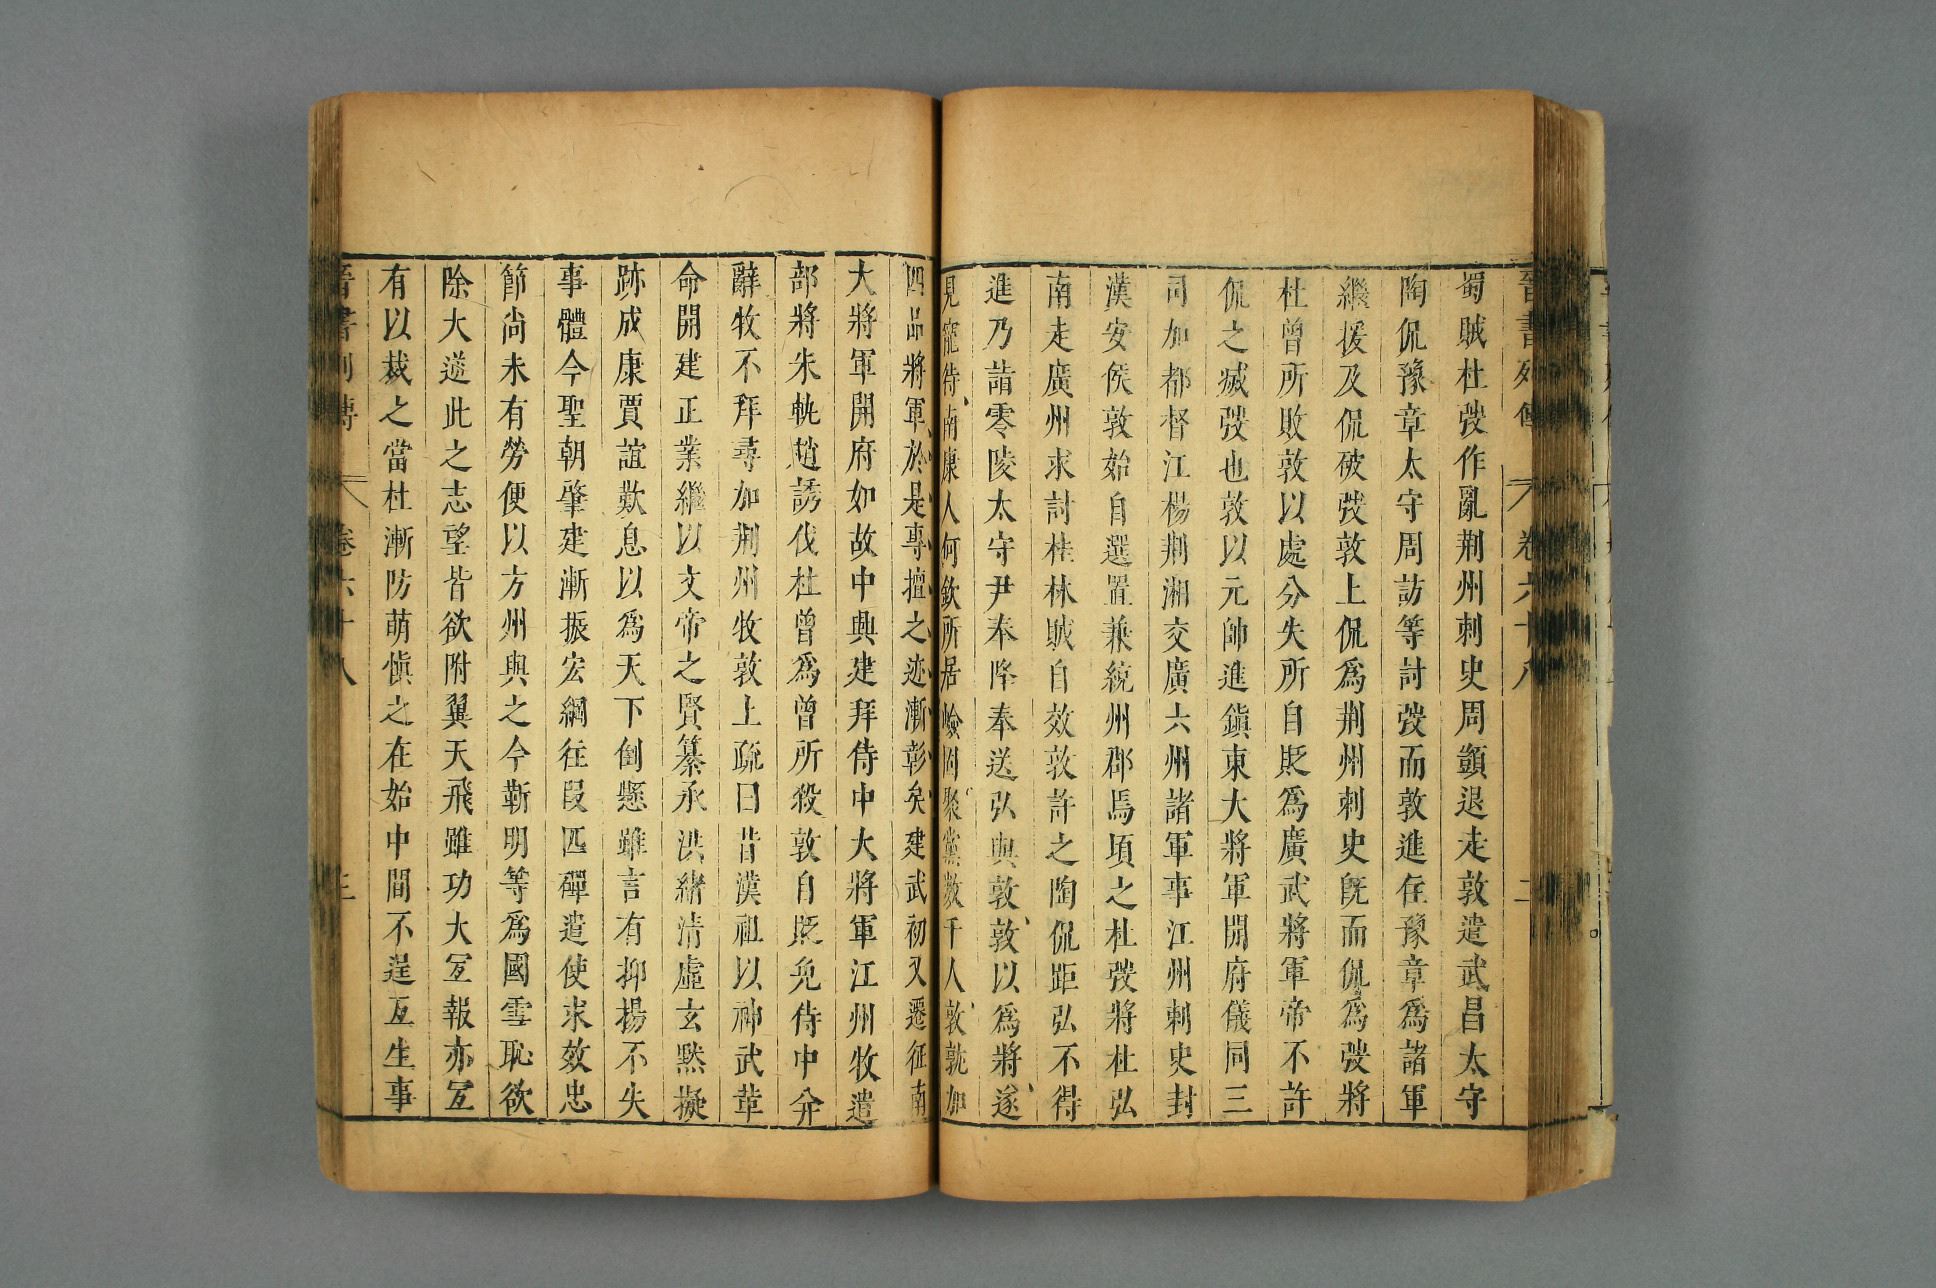 晉書列傳 卷六十八 二
蜀賊杜弢作亂荆州刺史周顗退走敦遣武昌太守
陶侃豫章太守周訪等討弢而敦進住豫章爲諸軍
繼援及侃破弢敦上侃爲荆州刺史旣而侃爲弢將
杜曾所敗敦以處分失所自貶爲廣武將軍帝不許
侃之滅弢也敦以元帥進鎭東大將軍開府儀同三
司加都督江楊荆湘交廣六州諸軍事江州刺史封
漢安侯敦始自選置兼統州郡焉頃之杜弢將杜弘
南走廣州求討桂林賊自效敦許之陶侃距弘不得
進乃詣零陵太守尹奉降奉送弘與敦敦以爲將遂
見寵待南康人何欽所居嶮固聚黨數千人敦就加
四品將軍於是專擅之迹漸彰矣建武初又遷征南
大將軍開府如故中興建拜侍中大將軍江州牧遣
部將朱軌趙誘伐杜曾爲曾所殺敦自貶免侍中幷
辭牧不拜尋加荆州牧敦上疏曰昔漢祖以神武革
命開建正業繼以文帝之賢纂承洪緖清虛玄默擬
跡成康賈誼歎息以爲天下倒懸雖言有抑揚不失
事體今聖朝肇建漸振宏綱往段匹磾遣使求效忠
節尚未有勞便以方州與之今靳明等爲國雪恥欲
除大逆此之志望皆欲附翼天飛雖功大宜報亦宜
有以裁之當杜漸防萌愼之在始中間不逞互生事
晉書列傳 卷六十八 三